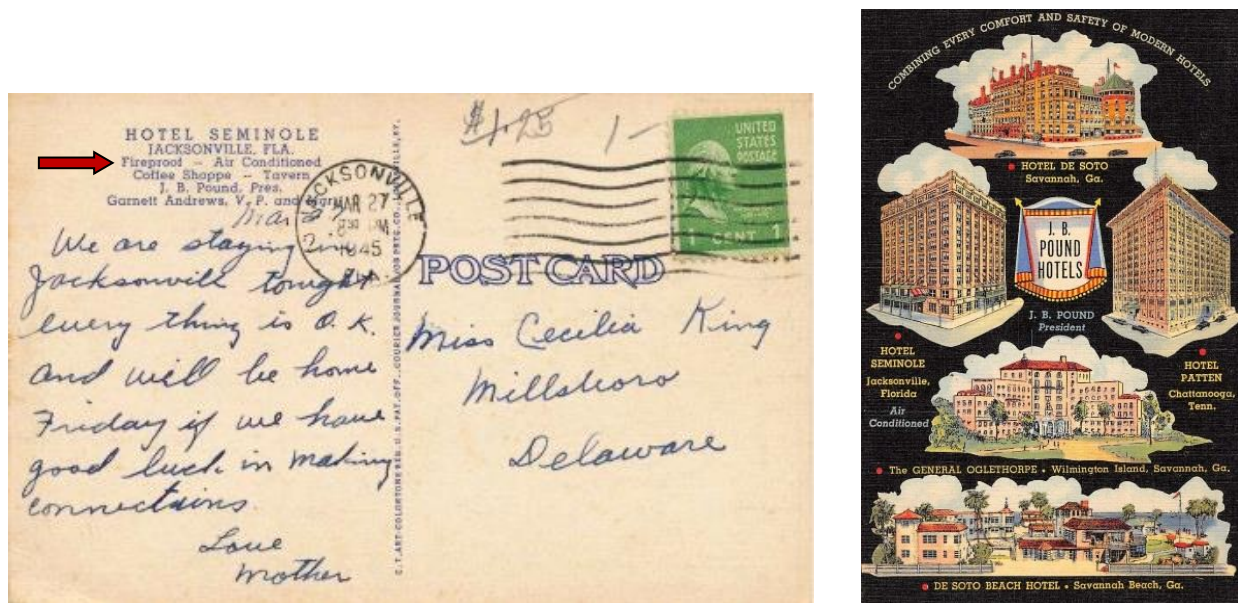 HOTEL SEMINOLE
JACKSONVILLE, FLA.
Fireproof – Air Conditioned
Coffee Shoppe – Tavern
J. B. Pound, Pres.
Garnett Andrews, V. P. and
Mar 27
We are staying in
Jacksonvill tonight
every thing is O.K.
and will be home
Friday if we have
good luck in making
connections.
Love
Mother
C.T. ART-COLORTONE REG. U.S. PAT. OFF.
$1.25
1-
JACKSONVILLE
MAR 27
1945
FLA
UNITED
STATES
POSTAGE
1 CENT 1
POST CARD
Miss Cecilia King
Millsboro
Delaware
COMBINING EVERY COMFORT AND SAFETY OF MODERN HOTELS
HOTEL DE SOTO
Savannah, Ga.
J. B.
POUND
HOTELS
J. B. POUND
President
HOTEL
SEMINOLE
Jacksonville,
Florida
Air
Conditioned
HOTEL
PATTEN
Chattanooga,
Tenn.
The GENERAL OGLETHORPE • Wilmington Island, Savannah, Ga.
DE SOTO BEACH HOTEL • Savannah Beach, Ga.